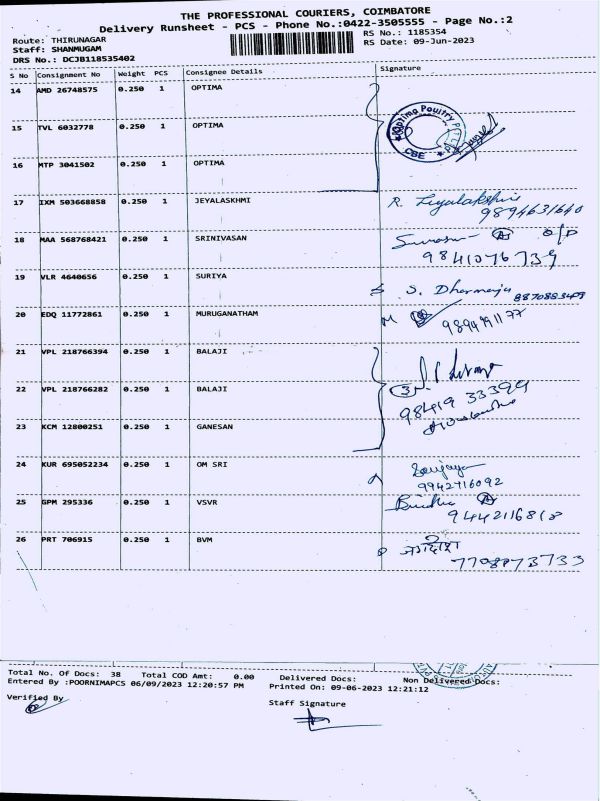 THE PROFESSIONAL COURIERS, COIMBATORE
Delivery Runsheet - PCS - Phone No.:0422-3505555 - Page No.:2
Route: THIRUNAGAR
RS No.: 1185354
Staff: SHANMUGAM
RS Date: 09-Jun-2023
DRS No.: DCJB118535402
S No Consignment No Weight PCS Consignee Details Signature
14 AMD 26748575 0.250 1 OPTIMA
15 TVL 6032778 0.250 1 OPTIMA
Optima Poultry
CBE
16 MTP 3041502 0.250 1 OPTIMA
17 IXM 503668858 0.250 1 JEYALASKHMI R. Jeyalakshmi
9894631640
18 MAA 568768421 0.250 1 SRINIVASAN
9841076739
19 VLR 4640656 0.250 1 SURIYA S. Dharmaraju
8870883409
20 EDQ 11772861 0.250 1 MURUGANATHAM
9894991177
21 VPL 218766394 0.250 1 BALAJI
22 VPL 218766282 0.250 1 BALAJI 3
98419 33394
23 KCM 12800251 0.250 1 GANESAN
24 KUR 695052234 0.250 1 OM SRI Sanjay
9942716092
25 GPM 295336 0.250 1 VSVR Bindhu A
9442116818
26 PRT 706915 0.250 1 BVM जगदीश
7708873733
Total No. Of Docs: 38 Total COD Amt: 0.00 Delivered Docs: Non Delivered Docs:
Entered By :POORNIMAPCS 06/09/2023 12:20:57 PM Printed On: 09-06-2023 12:21:12
Verified By
Staff Signature